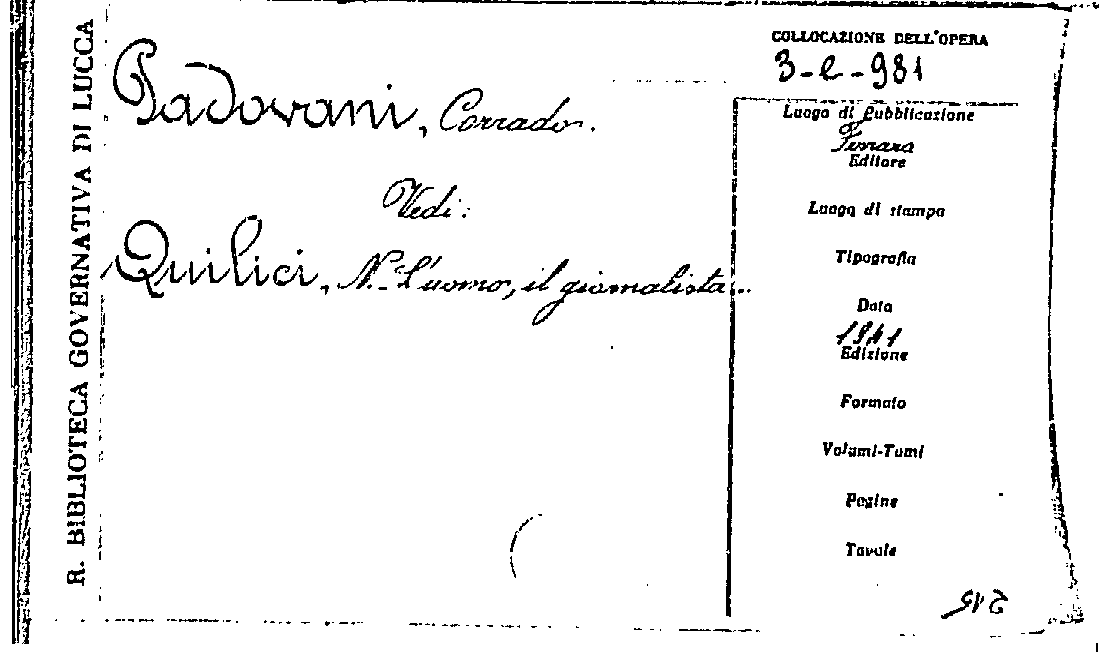 R. BIBLIOTECA GOVERNATIVA DI LUCCA
Padovani, Corrado.
Vedi:
Quilici, N.- L'uomo, il giornalista...
COLLOCAZIONE DELL'OPERA
3-e-981
Luogo di Pubblicazione
Ferrara
Editore
Luogo di stampa
Tipografia
Data
1941
Edizione
Formato
Volumi-Tomi
Pagine
Tavole